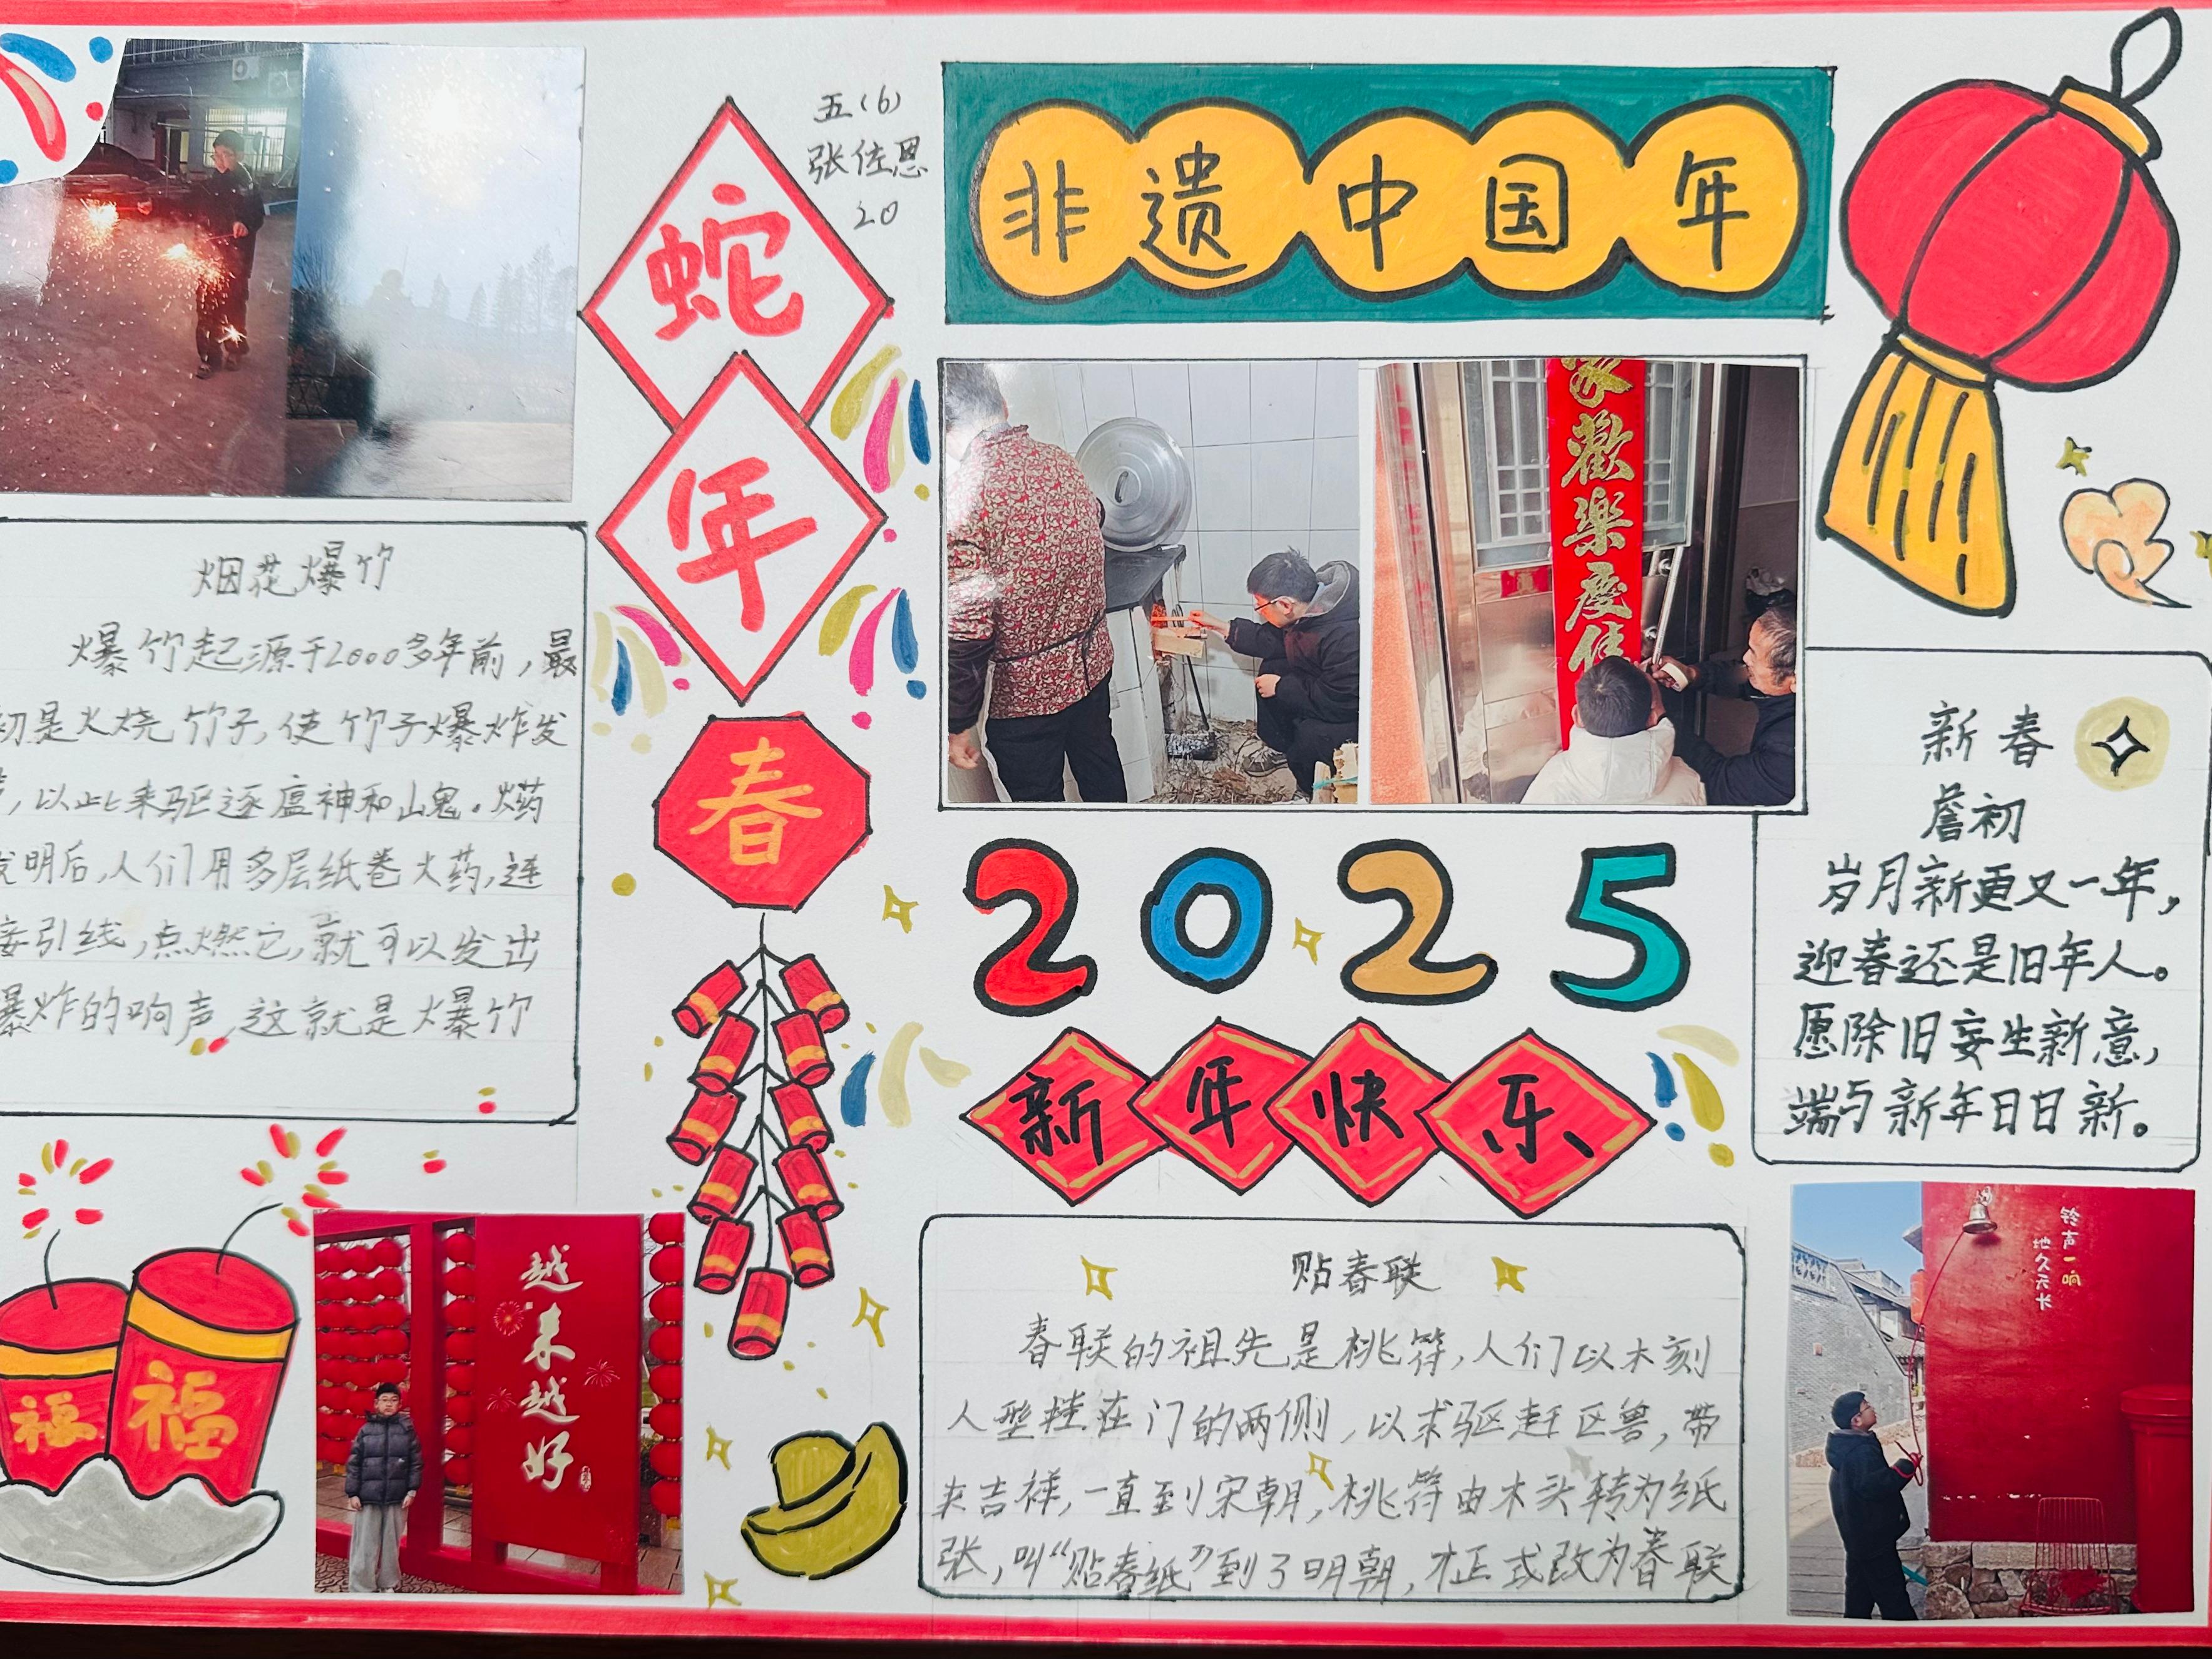 五(6)
张佐恩
20
非遗中国年
蛇
年
春
家歡樂度佳
烟花爆竹
爆竹起源于2000多年前，最
初是火烧竹子，使竹子爆炸发
，以此来驱逐瘟神和山鬼。火药
发明后，人们用多层纸卷火药，连
接引线，点燃它，就可以发出
爆炸的响声，这就是爆竹
2025
新年快乐
新春
詹初
岁月新更又一年，
迎春还是旧年人。
愿除旧妄生新意，
端与新年日日新。
贴春联
春联的祖先是桃符，人们以木刻
人型挂在门的两侧，以求驱赶区兽，带
来吉祥，一直到宋朝，桃符由木头转为纸
张，叫“贴春纸”到了明朝，才正式改为春联
福
福
越来越好
铃声一响
地久天长